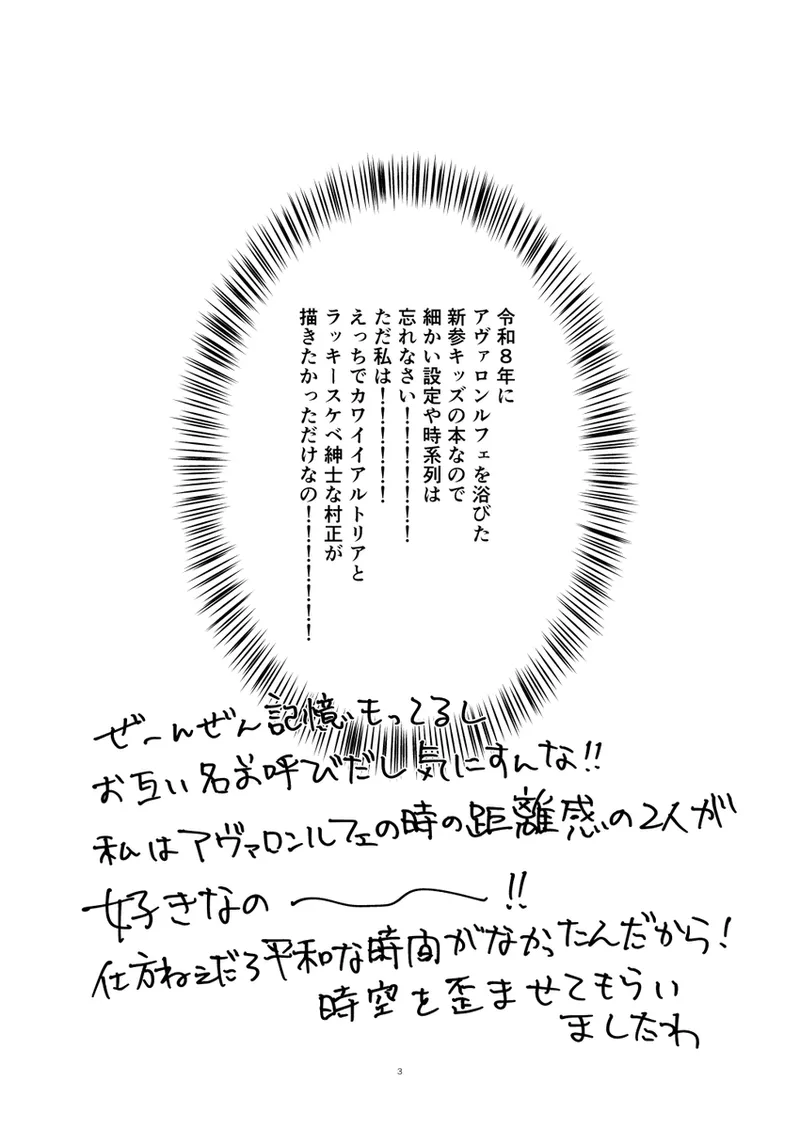 令和８年に
アヴァロンルフェを浴びた
新参キッズの本なので
細かい設定や時系列は
忘れなさい！！！！！！！
ただ私は！！！！！！
えっちでカワイイアルトリアと
ラッキースケベ紳士な村正が
描きたかっただけなの！！！！！！！
ぜーんぜん記憶もってるし
お互い名前呼びだし気にすんな!!
私はアヴァロンルフェの時の距離感の2人が
好きなの〜!!
仕方ねぇだろ平和な時間がなかったんだから!
時空を歪ませてもらい
ましたわ
3